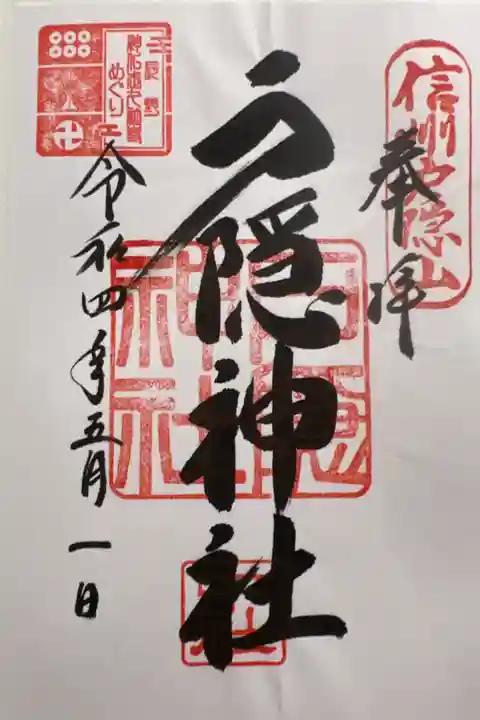 信州戸隠山
奉拝
戸隠神社
令和四年五月一日
めぐり
戸隠神社